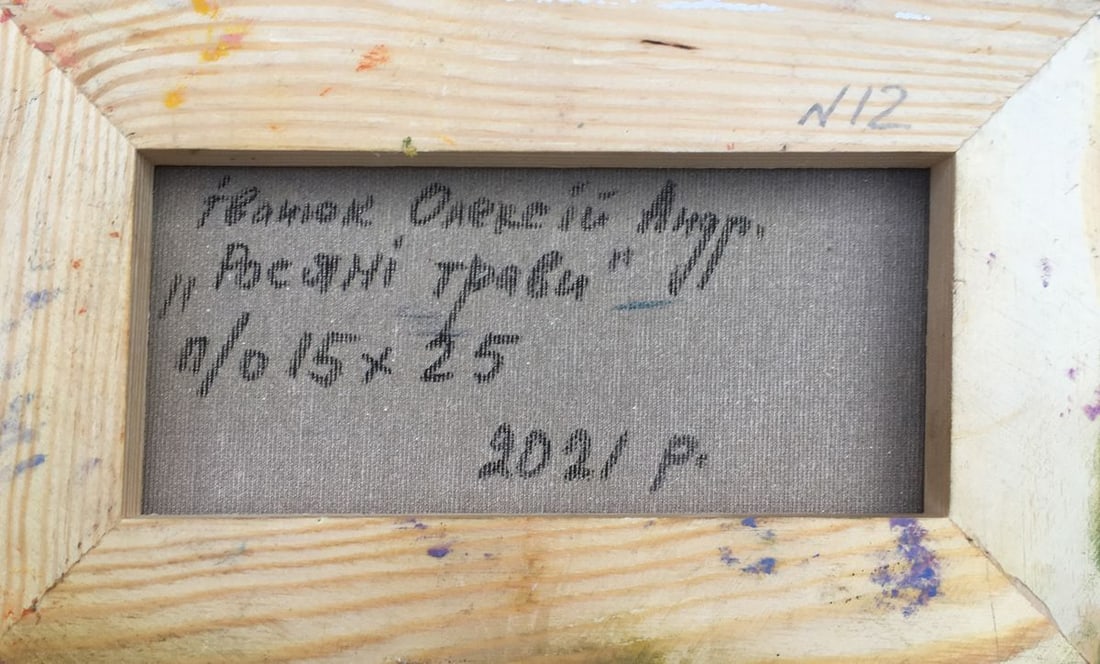 N12
Іванюк Олексій Андр.
„Росяні трави"
п/о 15 x 25
2021 р.